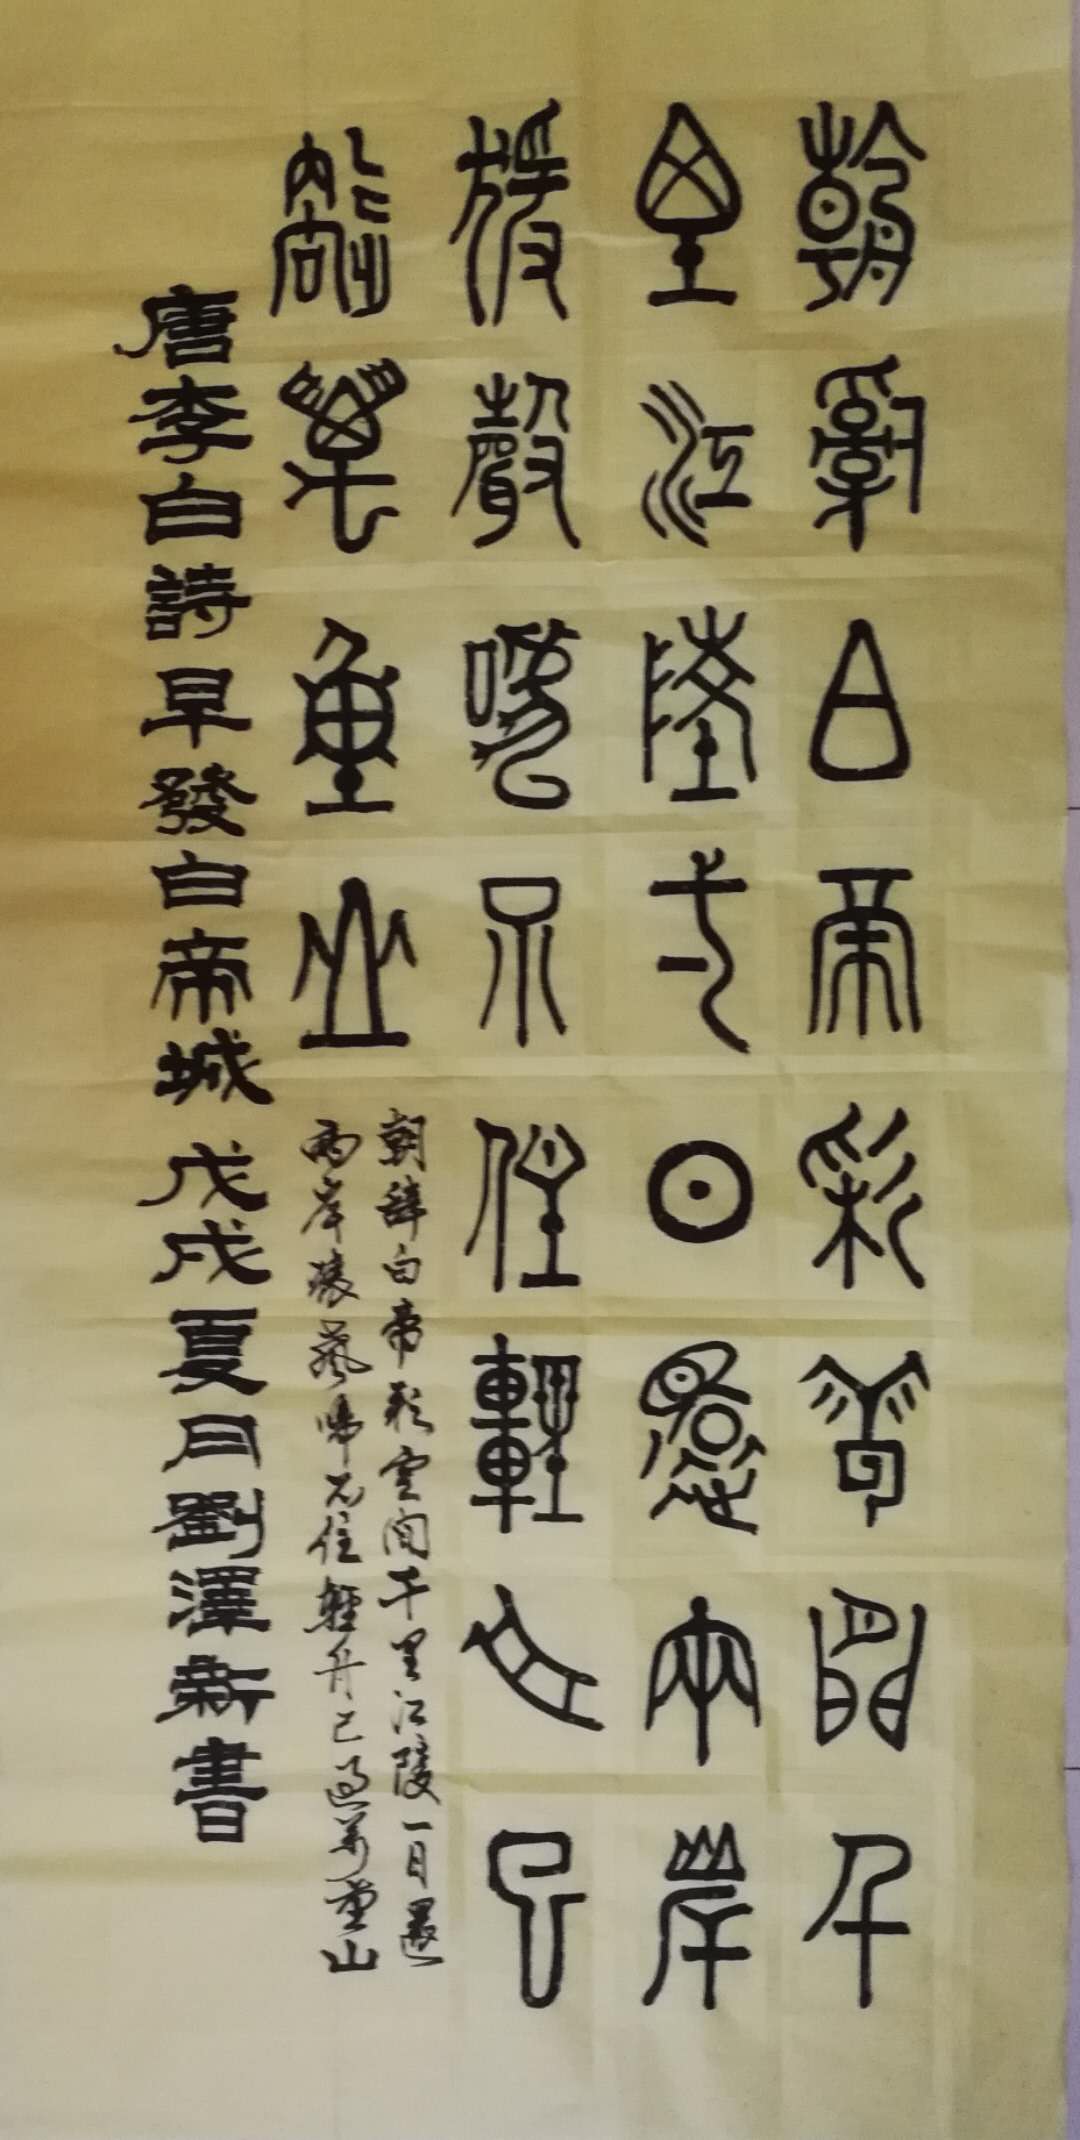 朝辭白帝彩雲間千
里江陵弌日還兩岸
猨聲啼不住輕舟已
過萬重山
朝辞白帝彩雲间千里江陵一日還
两岸猿聲啼不住輕舟已過萬重山
唐李白詩早發白帝城 戊戌夏月劉澤新書